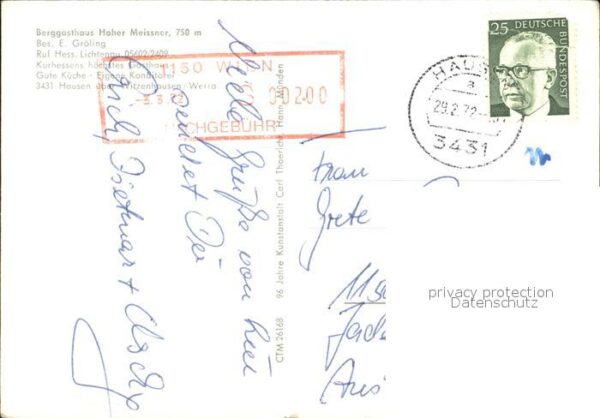 Berggasthaus Hoher Meissner, 750 m
Bes. E. Gröling
Ruf Hess. Lichtenau 05602/2409
Kurhessens höchstes Gasthaus
Gute Küche - Eigene Konditorei
3431 Hausen über Witzenhausen/Werra
1150 WIEN
-3.3.72
00200
NACHGEBÜHR
25 DEUTSCHE
BUNDESPOST
HAUSEN
a
29.2.72
3431
Viele Grüße von hier
sendet Dir
Dietmar +
CTM 26168
96 Jahre Kunstanstalt Carl Thoericht, Hann. Münden
Frau
Grete
115
privacy protection
Datenschutz